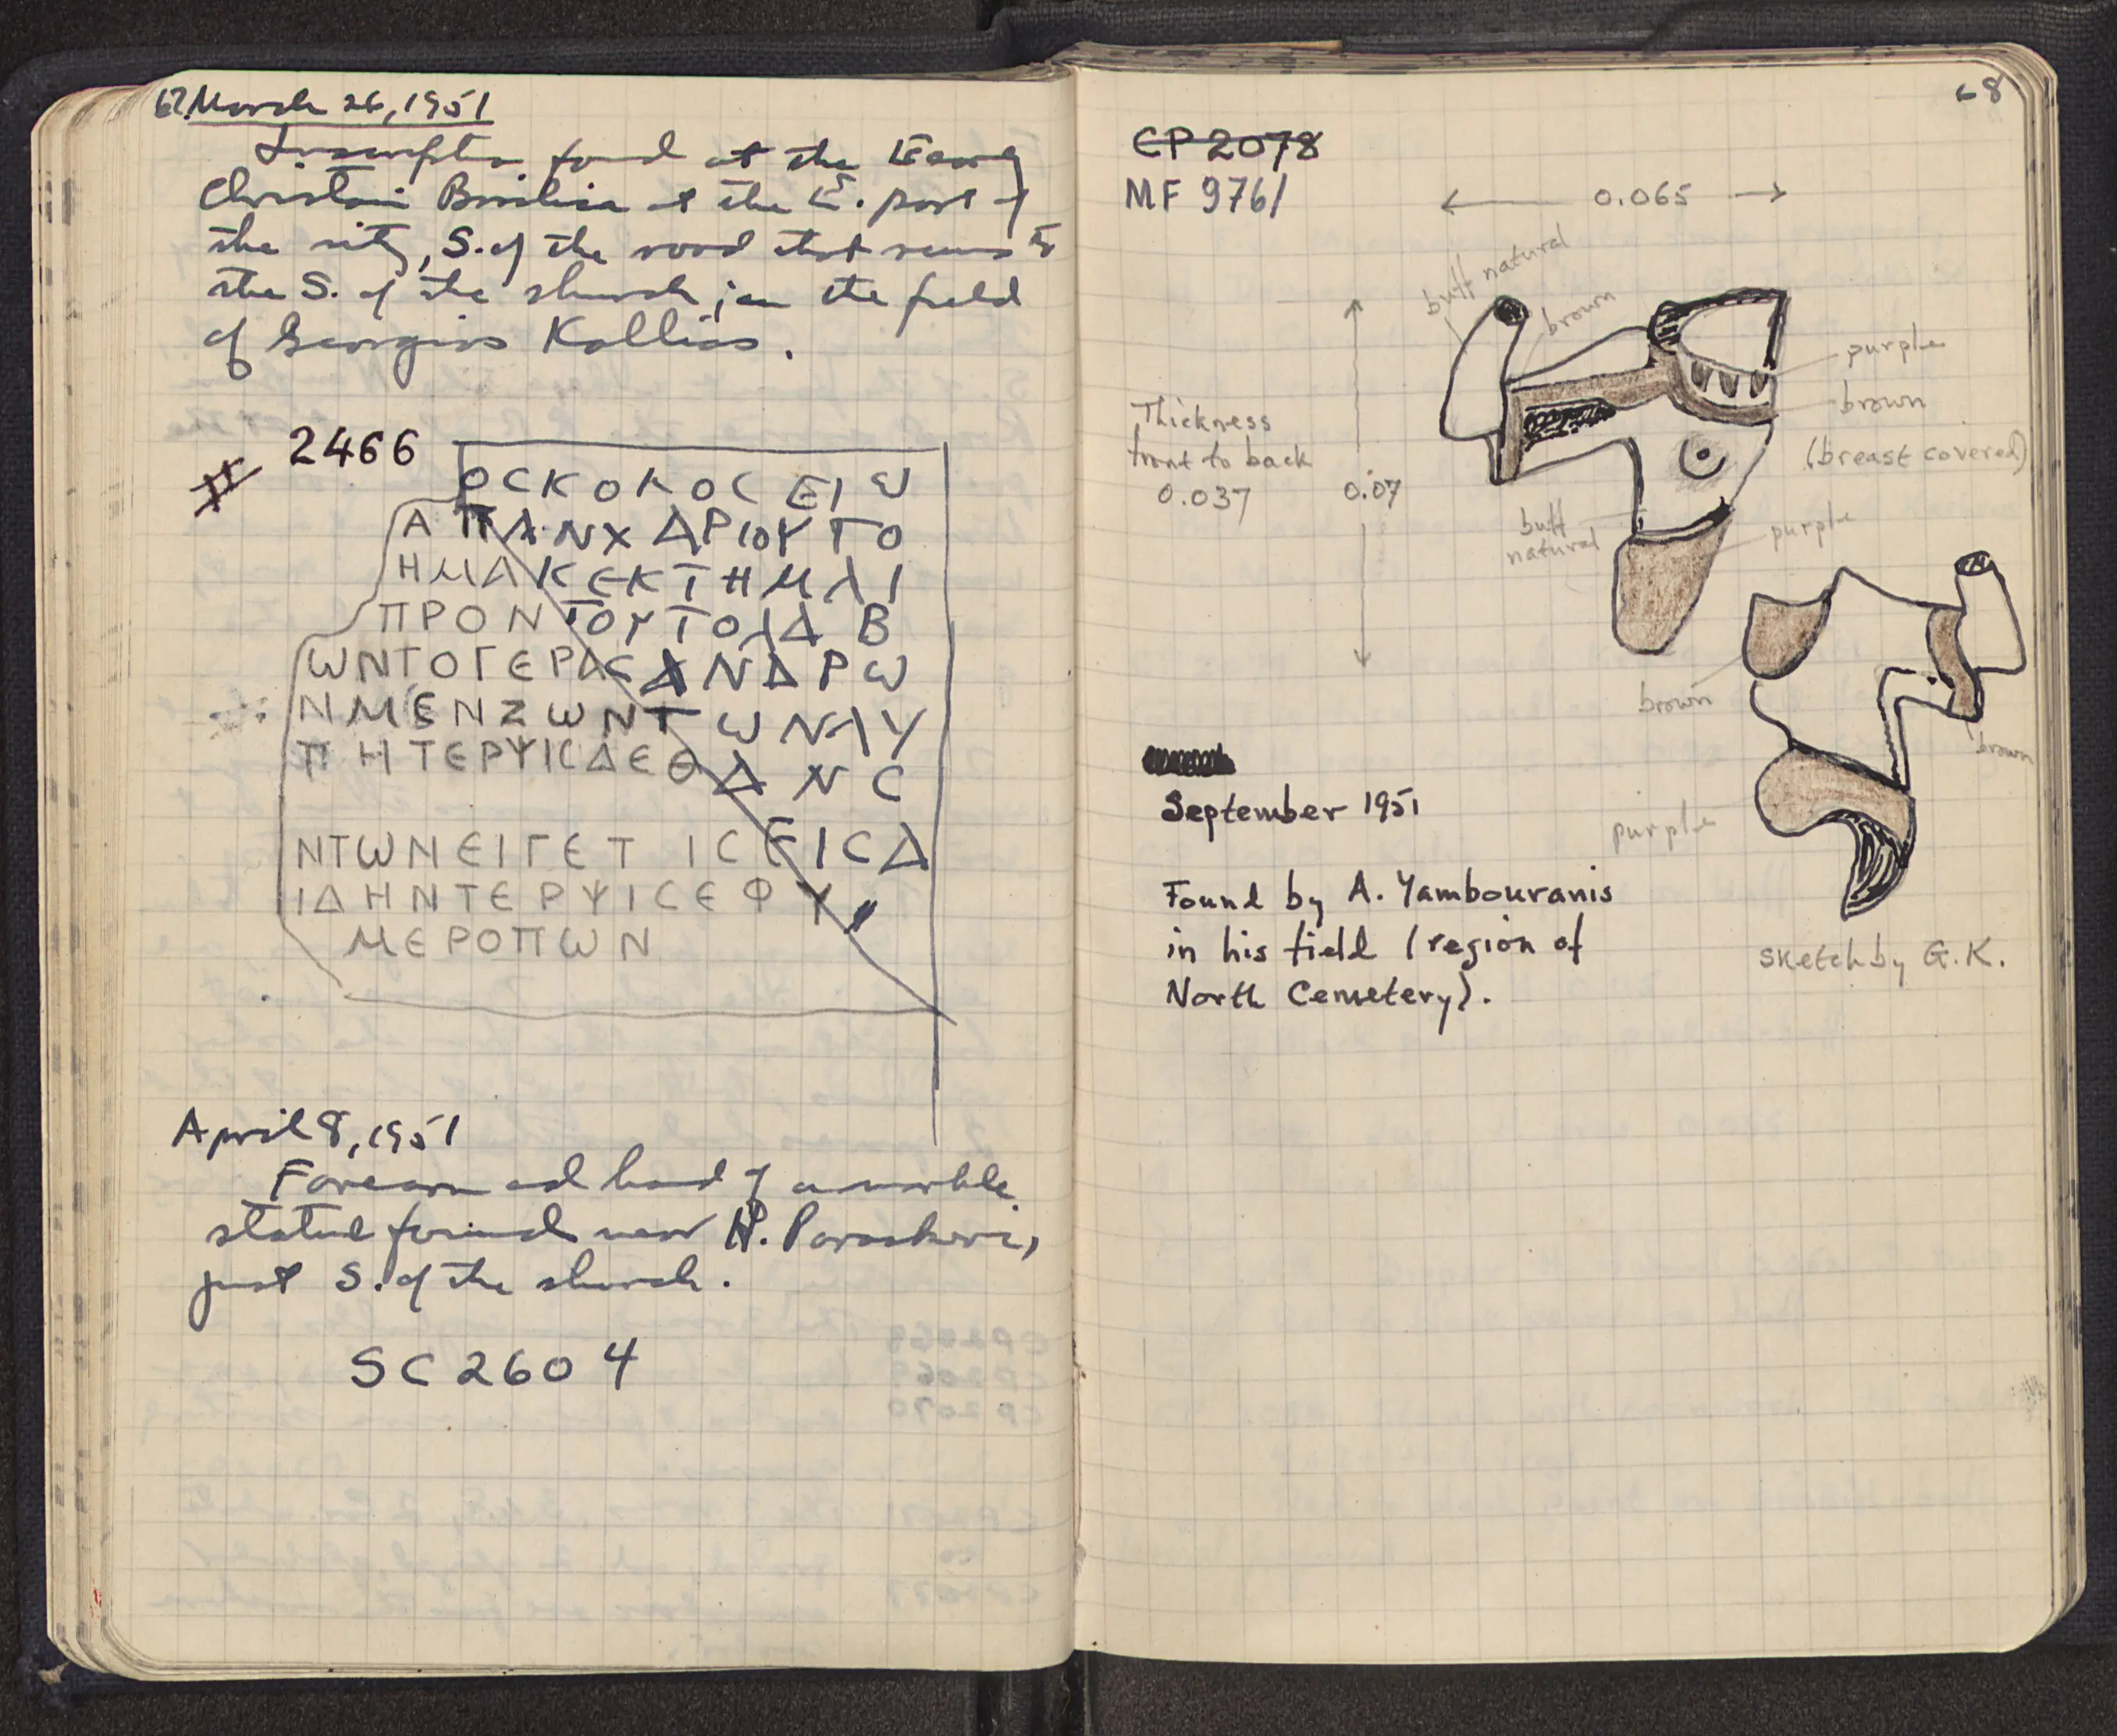 67. March 26, 1951
Inscription found at the Early
Christian Basilica at the E. part of
the city, S. of the road that runs to
the S. of the church; in the field
of Georgios Kallias.
# 2466
ΟCΚΟΛΟC ΕΙω
Α ΠΑΝΧΑΡΙΟΥΤΟ
ΗΜΑΚΕΚΤΗΜΑΙ
ΠΡΟΝΤΟΥΤΟΛΑΒ
ωΝΤΟΓΕΡΑCΑΝΔΡω
ΝΜΕΝΖωΝΤωΝΛΥ
ΠΗΤΕΡΨΙCΔΕΘΑΝC
ΝΤωΝΕΙΓΕΤ ΙCΕΙCΔ
ΙΔΗΝΤΕΡΨΙCΕΦΥ
ΜΕΡΟΠωΝ
April 8, 1951
Forearm and hand of a marble
statue found near H. Paraskevi,
just S. of the church.
SC 2604
68
CP 2078
MF 9761
0.065
buff natural
brown
purple
brown
(breast covered)
Thickness
front to back
0.037
0.07
buff
natural
purple
brown
brown
September 1951
purple
Found by A. Yambouranis
in his field (region of
North Cemetery).
sketch by G.K.